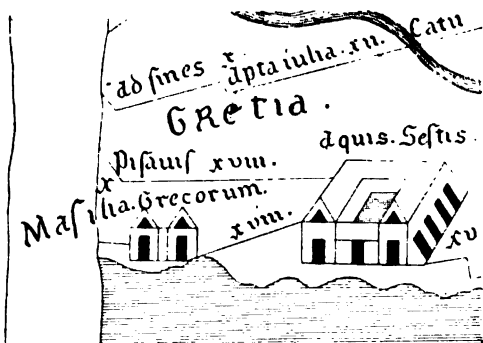 Catu
ad fines x Apta iulia. xii.
GRETIA.
Aquis. Sestis
Pisauis xviii.
x
Masilia. Grecorum.
xviii.
xv